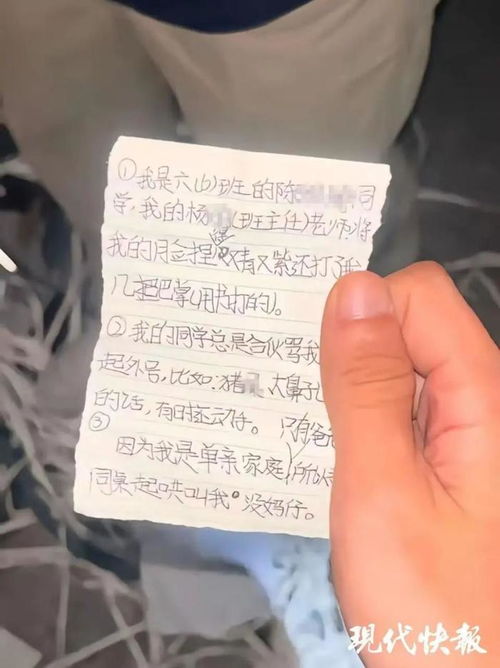 ①我是六(6)班的陈 同
学,我的杨 (班主任)老师将
我的脸捏 又青又紫还打了我
几把巴掌(用书打的)。
②我的同学总是合伙骂我
起外号,比如:猪 大鼻孔
的话,有时还动手。 只有爸爸
③
因为我是单亲家庭,所以
同桌起哄叫我"没妈仔。
现代快报